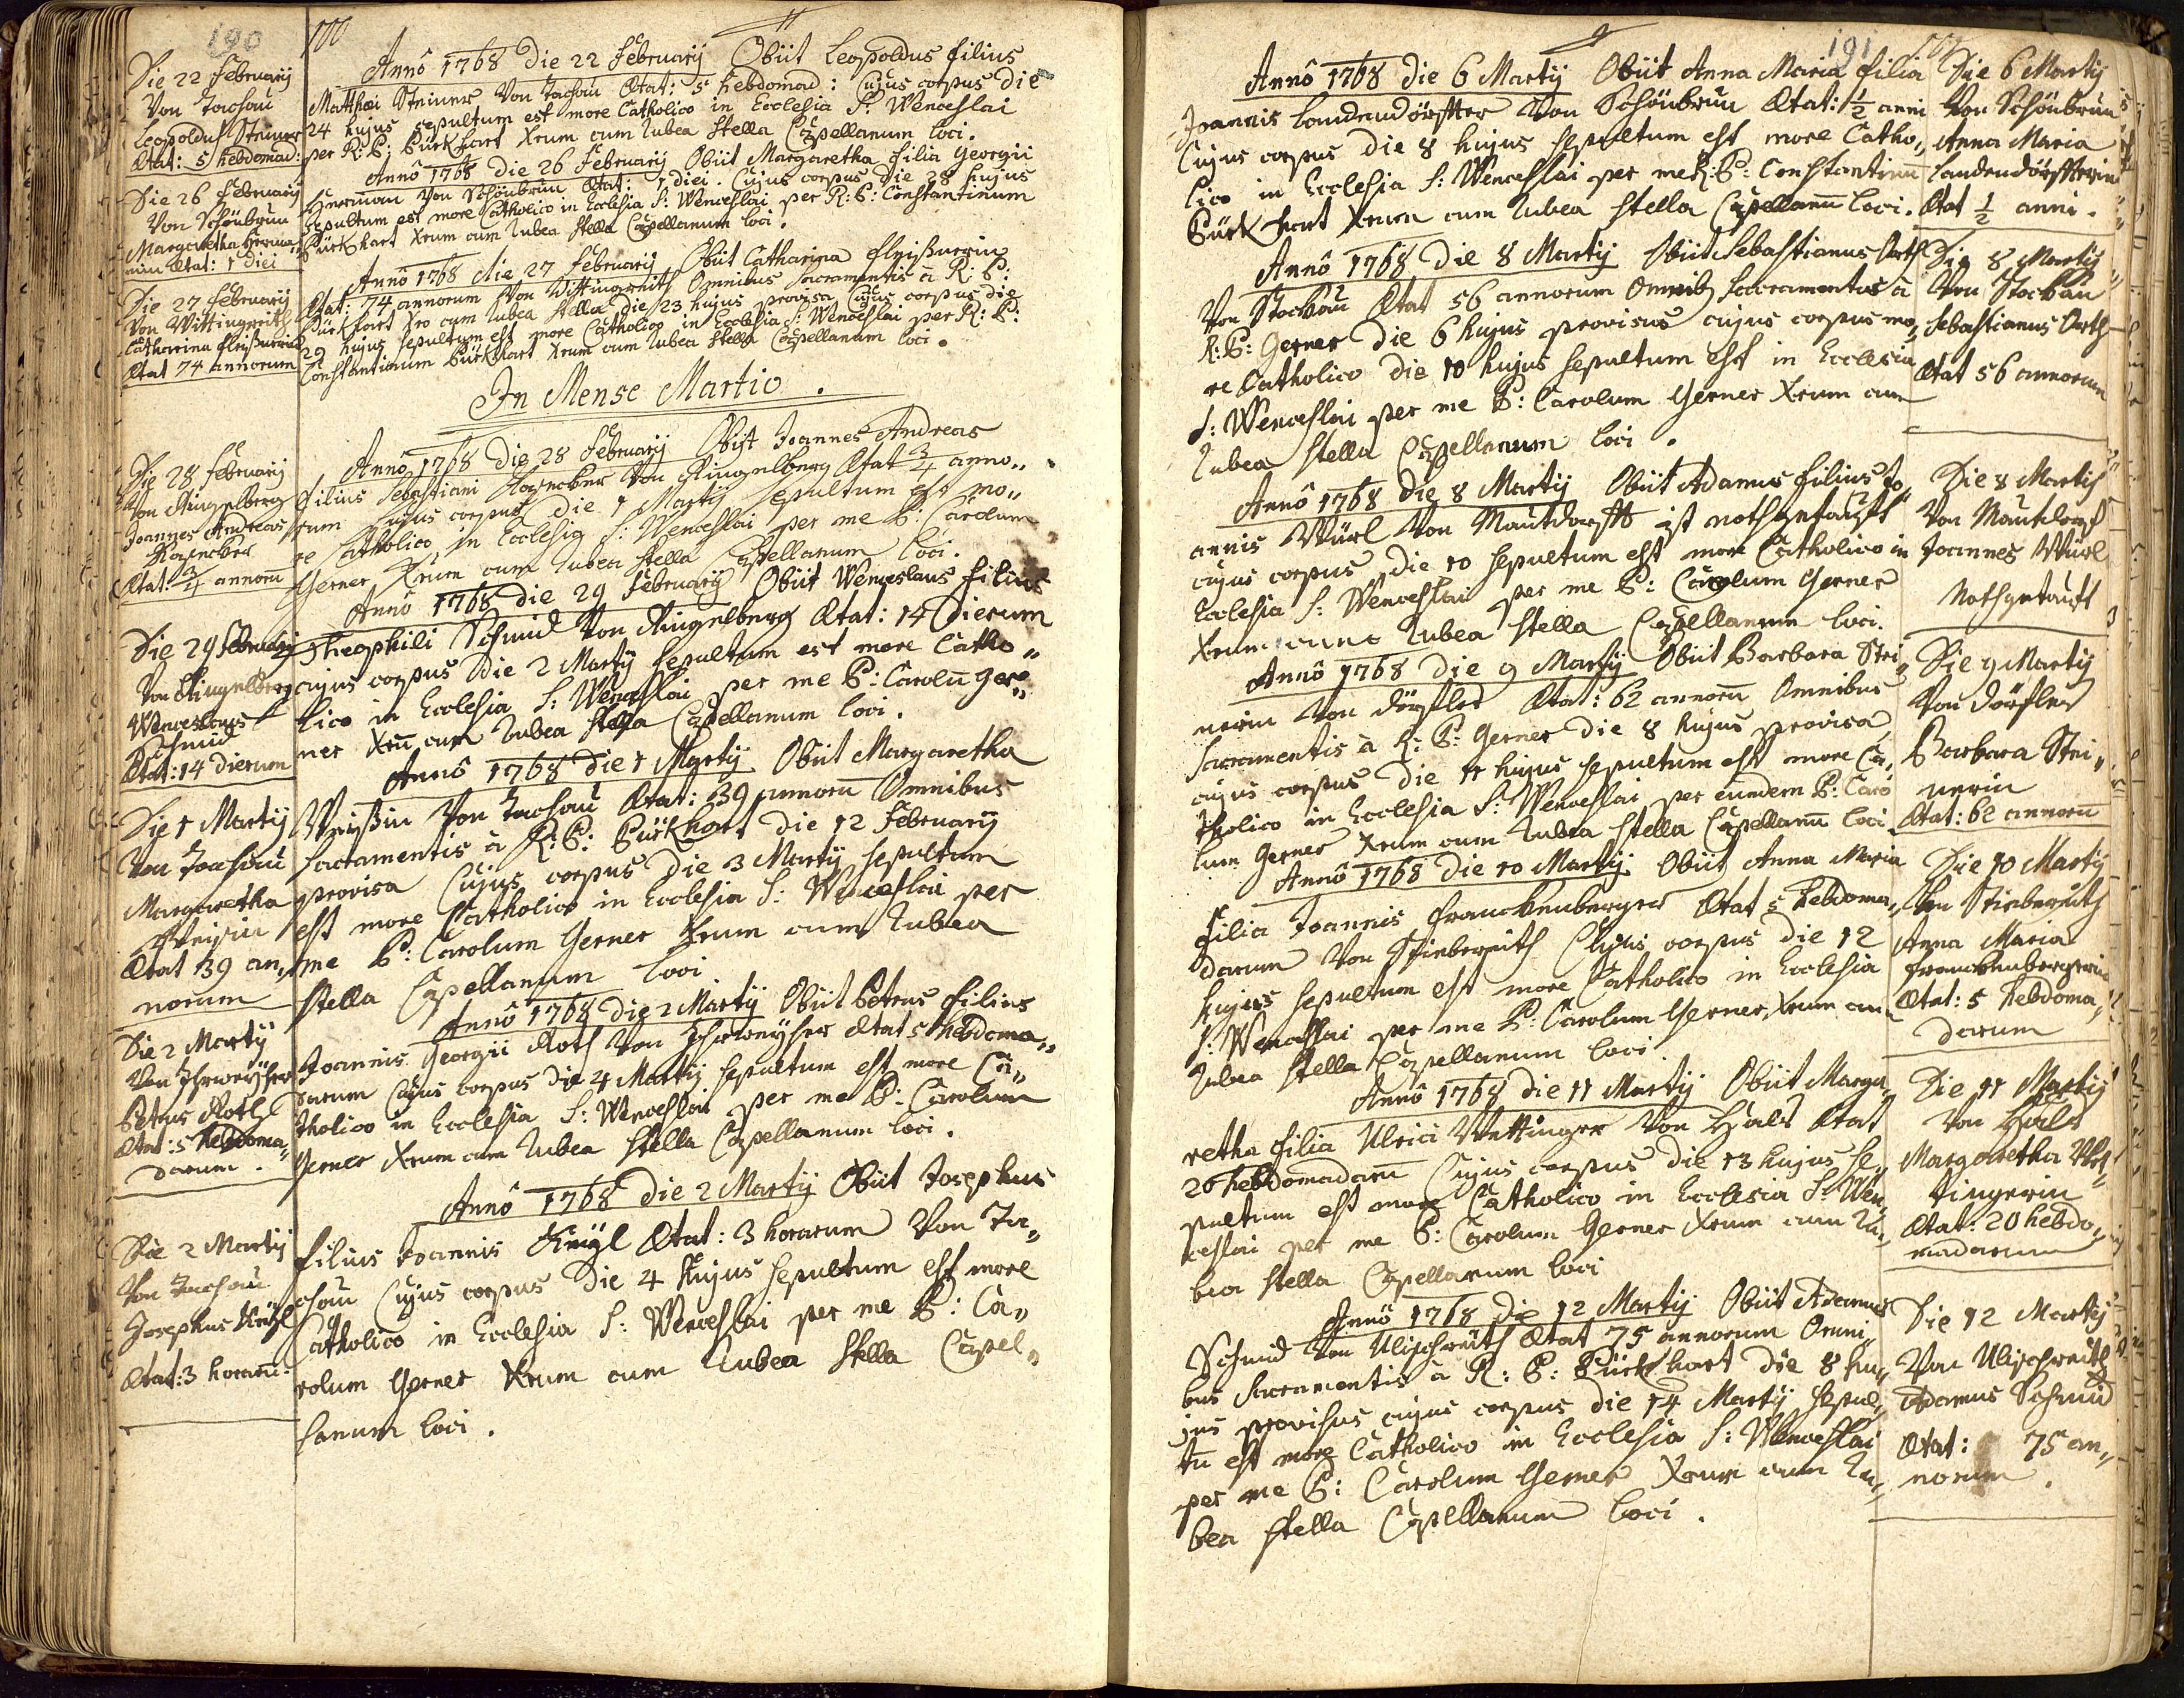 190
Die 22 Februarij
Von Tachau
Leopoldus Steiner
Ætat: 5 hebdomad:
Die 26 Februarij
Von Schönbrun
Margaretha Herma-
nin Ætat: 1 diei
Die 27 Februarij
Von Wittingreith
Catharina
Ætat 74 annorum
Die 28 Februarij
Von Ringelberg
Joannes Andreas
Ætat: 3/4 annorū
Die 29 Februarij
Von Ringelberg
Wenceslaus
Schmid
Ætat: 14 dierum
Die 1 Martij
Von Tachau
Margaretha
Ætat 39 an„
norum
Die 2 Martij
Von
Petrus Roth
Ætat: 5 hebdoma„
darum.
Die 2 Martij
Von Tachau
Josephus
Ætat: 3 horarū.
Annô 1768 die 22 Februarij Obiit Leopoldus filius
Matthæi Steiner Von Tachau Ætat: 5 hebdomad: Cujus corpus die
24 hujus sepultum est more Catholico in Ecclesia S: Wenceslai
per R: P: Bürckhart Xrum cum rubea stella Capellanum loci.
Annô 1768 die 26 Februarij Obiit Margaretha filia Georgii
Hermann Von Schönbrun Ætat: 1 diei. Cujus corpus die 28 hujus
sepultum est more Catholico in Ecclesia S: Wenceslai per R: P: Constantinum
Bürckhart Xrum cum rubea stella Capellanum loci.
Annô 1768 die 27 Februarij Obiit Catharina
Ætat: 74 annorum Von Wittingreith Omnibus sacramentis à R: P:
Bürckhart Xro cum rubea stella die 23 hujus provisa Cujus corpus die
29 hujus sepultum est more Catholico in Ecclesia S: Wenceslai per R: P:
Constantinum Bürckhart Xrum cum rubea stella Capellanum loci.
In Mense Martio.
Annô 1768 die 28 Februarij Obiit Joannes Andreas
filius Sebastiani Von Ringelberg Ætat 3/4 anno„
rum Cujus corpus die 1 Martij sepultum est mo„
re Catholico in Ecclesia S: Wenceslai per me P: Carolum
Gerner Xrum cum rubea stella Capellanum loci.
Annô 1768 die 29 Februarij Obiit Wenceslaus filius
Theophili Schmid Von Ringelberg Ætat: 14 dierum
cujus corpus die 2 Martij sepultum est more Catho„
lico in Ecclesia S: Wenceslai per me P: Carolū Ger„
ner Xrū cum rubea stella Capellanum loci.
Annô 1768 die 1 Martij Obiit Margaretha
Von Tachau Ætat: 39 annorū Omnibus
sacramentis à R: P: Bürckhart die 12 Februarij
provisa Cujus corpus die 3 Martij sepultum
est more Catholico in Ecclesia S: Wenceslai per
me P: Carolum Gerner Xrum cum rubea
stella Capellanum loci
Annô 1768 die 2 Martij Obiit Petrus filius
Joannis Georgii Roth Von Ætat 5 hebdoma„
darum Cujus corpus die 4 Martij sepultum est more Ca„
tholico in Ecclesia S: Wenceslai per me P: Carolum
Gerner Xrum cum rubea stella Capellanum loci.
Annô 1768 die 2 Martij Obiit Josephus
filius Joannis Ætat: 3 horarum Von Ta„
chau Cujus corpus die 4 hujus sepultum est more
Catholico in Ecclesia S: Wenceslai per me P: Ca„
rolum Gerner Xrum cum rubea stella Capel„
lanum loci.
191
Annô 1768 die 6 Martij Obiit Anna Maria filia
Joannis Landendörffter Von Schönbrun Ætat: 1/2 anni
Cujus corpus die 8 hujus sepultum est more Catho„
lico in Ecclesia S: Wenceslai per me R: P: Constantinū
Bürckhart Xrum cum rubea stella Capellanū loci.
Annô 1768 die 8 Martij Obiit Sebastianus Orth
Von Stockau Ætat 56 annorum Omnib sacramentis à
R: P: Gerner die 6 hujus provisus cujus corpus mo„
re Catholico die 10 hujus sepultum est in Ecclesia
S: Wenceslai per me P: Carolum Gerner Xrum cum
rubea stella Capellanum loci.
Annô 1768 die 8 Martij Obiit Adamus filius Jo„
annis Würl Von Mautdorff ist nothgetaufft
cujus corpus die 10 sepultum est more Catholico in
Ecclesia S: Wenceslai per me P: Carolum Gerner
Xrum cum rubea stella Capellanum loci.
Annô 1768 die 9 Martij Obiit Barbara Stei„
nerin Von Dörfles Ætat: 62 annorū Omnibus
sacramentis à R: P: Gerner die 8 hujus provisa
cujus corpus die 11 hujus sepultum est more Ca„
tholico in Ecclesia S: Wenceslai per eundem P: Caro
lum Gerner Xrum cum rubea stella Capellanū loci.
Annô 1768 die 10 Martij Obiit Anna Maria
filia Joannis Franckenberger Ætat 5 hebdoma„
darum Von Stiebereith Cujus corpus die 12
hujus sepultum est more Catholico in Ecclesia
S: Wenceslai per me P: Carolum Gerner Xrum cum
rubea stella Capellanum loci.
Annô 1768 die 11 Martij Obiit Marga„
retha filia Ulrici Wettinger Von Hals Ætat
20 hebdomadarū Cujus corpus die 13 hujus se„
pultum est more Catholico in Ecclesia S: Wen„
ceslai per me P: Carolum Gerner Xrum cum ru„
bea stella Capellanum loci
Annô 1768 die 12 Martij Obiit Adamus
Schmid Von Ulischreith Ætat 75 annorum Omni„
bus sacramentis à R: P: Bürckhart die 8 hu„
jus provisus cujus corpus die 14 Martij sepul„
tū est more Catholico in Ecclesia S: Wenceslai
per me P: Carolum Gerner Xrum cum ru„
bea stella Capellanum loci.
Die 6 Martij
Von Schönbrun
Anna Maria
Landendörffterin
Ætat 1/2 anni.
Die 8 Martij
Von Stockau
Sebastianus Orth
Ætat 56 annorum
Die 8 Martij
Von Mautdorf
Joannes Würl
Nothgetauft
Die 9 Martij
Von Dörfles
Barbara Stei„
nerin
Ætat: 62 annorū
Die 10 Martij
Von Stiebereith
Anna Maria
Franckenbergerin
Ætat: 5 hebdoma„
darum
Die 11 Martij
Von Hals
Margaretha Wet„
tingerin
Ætat: 20 hebdo„
madarum
Die 12 Martij
Von Ulischreith
Adamus Schmid
Ætat: 75 an„
norum.